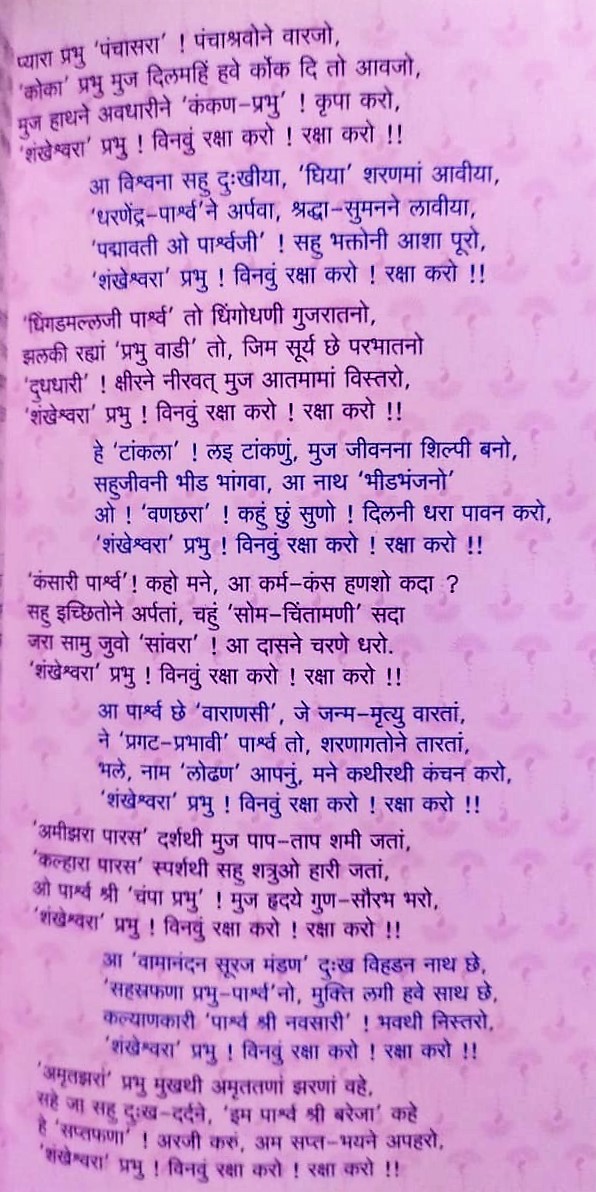 प्यारा प्रभु ‘पंचासरा’ ! पंचाश्रवोने वारजो,
‘कोका’ प्रभु मुज दिलमहिं हवे र्कोक दि तो आवजो,
मुज हाथने अवधारीने ‘कंकण-प्रभु’ ! कृपा करो,
‘शंखेश्वरा’ प्रभु ! विनवुं रक्षा करो ! रक्षा करो !!
आ विश्वना सहु दुःखीया, ‘घिया’ शरणमां आवीया,
‘धरणेंद्र-पार्श्व’ने अर्पवा, श्रद्धा-सुमनने लावीया,
‘पद्मावती ओ पार्श्वजी’ ! सहु भक्तोनी आशा पूरो,
‘शंखेश्वरा’ प्रभु ! विनवुं रक्षा करो ! रक्षा करो !!
‘धिंगडमल्लजी पार्श्व’ तो धिंगोधणी गुजरातनो,
झलकी रह्यां ‘प्रभु वाडी’ तो, जिम सूर्य छे परभातनो
‘दुधधारी’ ! क्षीरने नीरवत् मुज आतमामां विस्तरो,
‘शंखेश्वरा’ प्रभु ! विनवुं रक्षा करो ! रक्षा करो !!
हे ‘टांकला’ ! लइ टांकणुं, मुज जीवनना शिल्पी बनो,
सहुजीवनी भीड भांगवा, आ नाथ ‘भीडभंजनो’
ओ ! ‘वणछरा’ ! कहुं छुं सुणो ! दिलनी धरा पावन करो,
‘शंखेश्वरा’ प्रभु ! विनवुं रक्षा करो ! रक्षा करो !!
‘कंसारी पार्श्व’! कहो मने, आ कर्म-कंस हणशो कदा ?
सहु इच्छितोने अर्पतां, चहुं ‘सोम-चिंतामणी’ सदा
जरा सामु जुवो ‘सांवरा’ ! आ दासने चरणे धरो.
‘शंखेश्वरा’ प्रभु ! विनवुं रक्षा करो ! रक्षा करो !!
आ पार्श्व छे ‘वाराणसी’, जे जन्म-मृत्यु वारतां,
ने ‘प्रगट-प्रभावी’ पार्श्व तो, शरणागतोने तारतां,
भले, नाम ‘लोढण’ आपनुं, मने कथीरथी कंचन करो,
‘शंखेश्वरा’ प्रभु ! विनवुं रक्षा करो ! रक्षा करो !!
‘अमीझरा पारस’ दर्शथी मुज पाप-ताप शमी जतां,
‘कल्हारा पारस’ स्पर्शथी सहु शत्रुओ हारी जतां,
ओ पार्श्व श्री ‘चंपा प्रभु’ ! मुज हृदये गुण-सौरभ भरो,
‘शंखेश्वरा’ प्रभु ! विनवुं रक्षा करो ! रक्षा करो !!
आ ‘वामानंदन सूरज मंडण’ दुःख विहडन नाथ छे,
‘सहस्रफणा प्रभु-पार्श्व’नो, मुक्ति लगी हवे साथ छे,
कल्याणकारी ‘पार्श्व श्री नवसारी’ ! भवथी निस्तरो,
‘शंखेश्वरा’ प्रभु ! विनवुं रक्षा करो ! रक्षा करो !!
‘अमृतझरां’ प्रभु मुखथी अमृततणां झरणां वहे,
सहे जा सहु दुःख-दर्दने, ‘इम पार्श्व श्री बरेजा’ कहे
हे ‘सप्तफणा’ ! अरजी करुं, अम सप्त-भयने अपहरो,
‘शंखेश्वरा’ प्रभु ! विनवुं रक्षा करो ! रक्षा करो !!